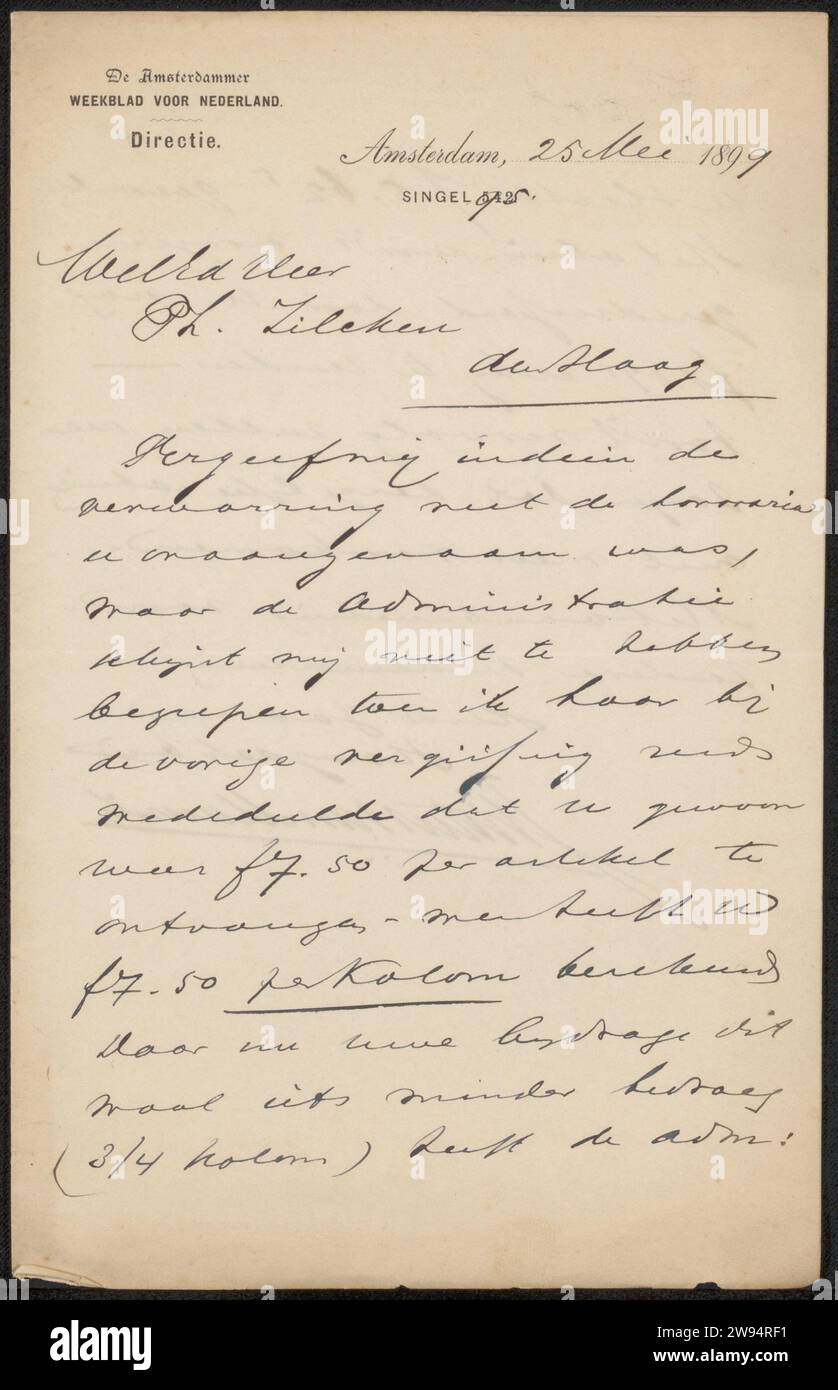 De Amsterdammer
WEEKBLAD VOOR NEDERLAND.
Directie.
Amsterdam, 25 Mei 1899
SINGEL 542 95.
WelEd Heer
Ph. Zilcken
den Haag
Vergeef mij indien de
verwarring met de honoraria
u onaangenaam was,
maar de Administratie
schijnt mij niet te hebben
begrepen toen ik haar bij
de vorige vergissing reeds
mededeelde dat u gewoon
was f7.50 per artikel te
ontvangen - men heeft U
f7.50 per Kolom berekend
Daar nu uwe bijdrage dit
maal iets minder bedraeg
(3/4 kolom) heeft de adm:
alamy
Image ID: 2W94RF1
www.alamy.com